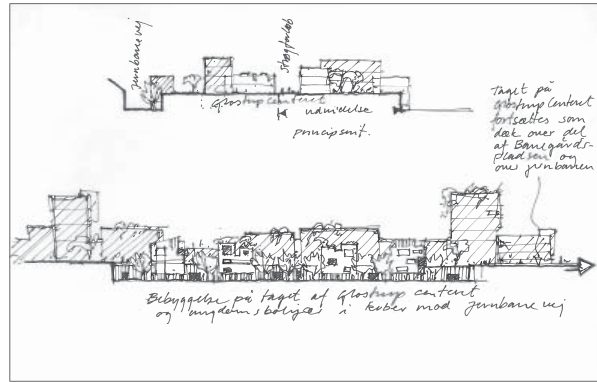 jernbanevej
strøgforløb
Glostrup Centeret
udvidelse
principsnit.
Taget på
Glostrup Centeret
fortsættes som
dæk over del
af Banegårds-
pladsen og
over jernbanen
Bebyggelse på taget af Glostrup centeret
og ungdomsboliger i kuber mod Jernbanevej